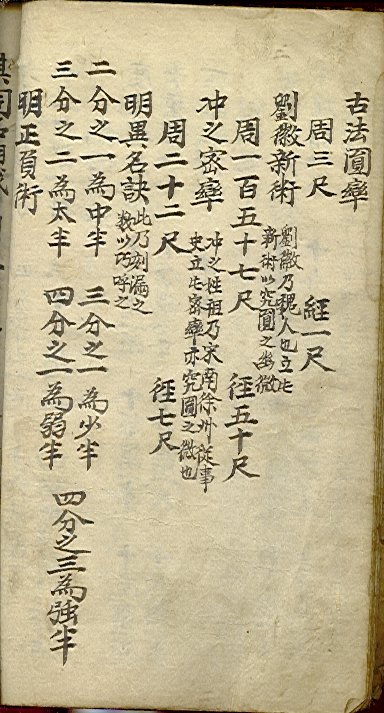 古法圓率
周三尺 經一尺
劉徽新術 劉徽乃魏人也立此
新術以究圓之幽微
周一百五十七尺 徑五十尺
冲之密率 冲之姓祖乃宋南徐州從事
史立此密率亦究圓之微也
周二十二尺 徑七尺
明異名訣 此乃刻漏之
數以巧呼之
二分之一為中半 三分之一為少半
三分之二為太半 四分之一為弱半 四分之三為強半
明正負術